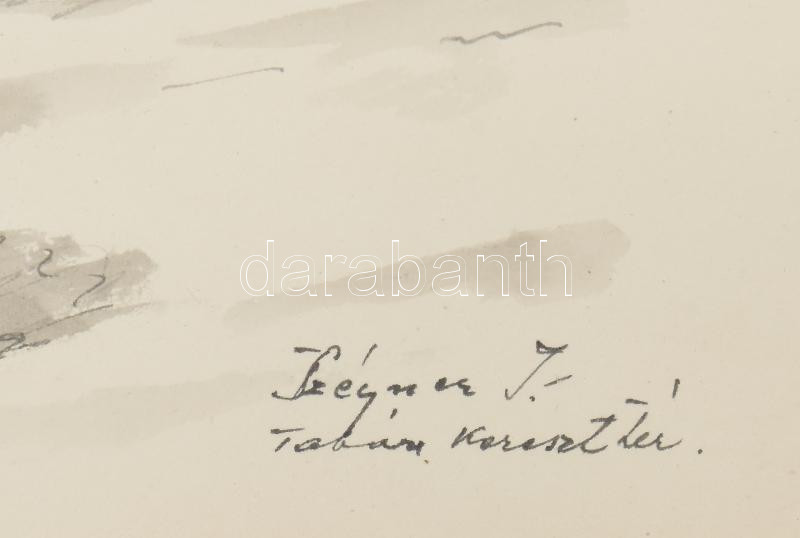 darabanth
Szégner J.-
Tabán Kereszt tér.